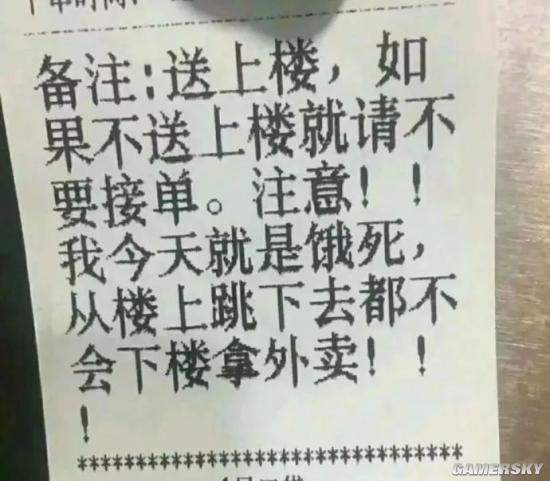 备注:送上楼，如
果不送上楼就请不
要接单。注意！！
我今天就是饿死，
从楼上跳下去都不
会下楼拿外卖！！
！
********************************
GAMERSKY